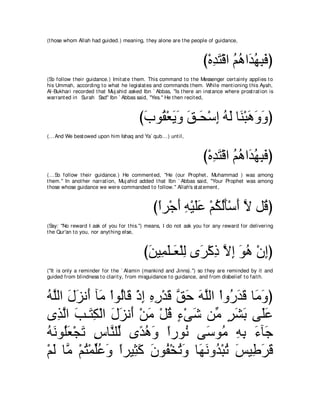 (those whom Allah had guided.) meaning, they alone are the people of guidance,
(فَبِهُدَاهُمُ اقْتَدِهْ)
(So follow their guidance.) Imitate them. This command to the Messenger certainly applies to
his Ummah, according to what he legislates and commands them. While mentioning this Ayah,
Al-Bukhari recorded that Mujahid asked Ibn `Abbas, "Is there an instance where prostration is
warranted in Surah Sad'' Ibn `Abbas said, "Yes.'' He then recited,
(وَوَهَبْنَا لَهُ إِسْحَـقَ وَيَعْقُوبَ)
(...And We bestowed upon him Ishaq and Ya`qub...) until,
(فَبِهُدَاهُمُ اقْتَدِهْ)
(...So follow their guidance.) He commented, "He (our Prophet, Muhammad ) was among
them.'' In another narration, Mujahid added that Ibn `Abbas said, "Your Prophet was among
those whose guidance we were commanded to follow.'' Allah's statement,
(قُل لاَّ أَسْأَلُكُمْ عَلَيْهِ أَجْراً)
(Say: "No reward I ask of you for this.'') means, I do not ask you for any reward for delivering
the Qur'an to you, nor anything else,
(إِنْ هُوَ إِلاَّ ذِكْرَى لِلْعَـلَمِينَ)
("It is only a reminder for the `Alamin (mankind and Jinns).'') so they are reminded by it and
guided from blindness to clarity, from misguidance to guidance, and from disbelief to faith.
(وَمَا قَدَرُواْ اللَّهَ حَقَّ قَدْرِهِ إِذْ قَالُواْ مَآ أَنزَلَ اللَّهُ
عَلَى بَشَرٍ مِّن شَىْءٍ قُلْ مَنْ أَنزَلَ الْكِتَـبَ الَّذِى
جَآءَ بِهِ مُوسَى نُوراً وَهُدًى لِّلنَّاسِ تَجْعَلُونَهُ
قَرَطِيسَ تُبْدُونَهَا وَتُخْفُونَ كَثِيراً وَعُلِّمْتُمْ مَّا لَمْ